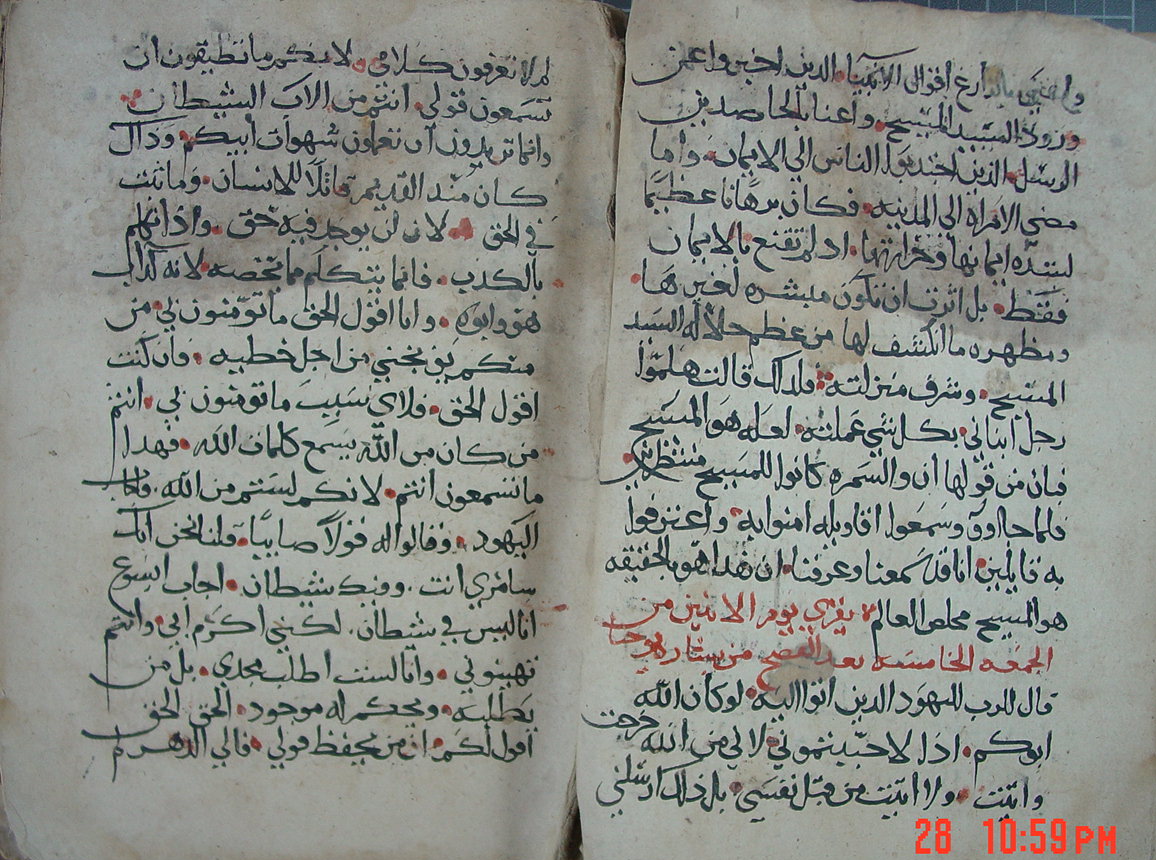 واعتني بالدارع اقوال الانبيا الذين اخبروا عن
ورود السيد المسيح وأعنا بالحاصدين
الرسل الذين اجتدبوا الناس الي الايمان واما
مضي الامراه الي المدينه فكان برهانا عظيما
لشده ايمانها وحرارتها اد لم تقنع بالايمان
فقط بل اثرت ان تكون مبشره لغيرها
ومظهره ما انكشف لها من عظم جلاله السيد
المسيح وشرف منزلته فلدلك قالت هلموا
رجل انباني بكل شي عملته لعله هو المسيح
فبان من قولها ان والسمره كانوا للمسيح منتظرين
فلما جاوو وسمعوا اقاويله امنوا به واعترفوا
به قايلين اننا قد سمعنا وعرفنا ان هدا هو بالحقيقه
هو المسيح مخلص العالم يقري يوم الاتنين من
الجمعه الخامسه بعد الفصح من بشاره يوحنا
قال الرب لليهود الدين اتوا اليه لو كان الله
ابوكم ادا لاحببتموني لاني من الله خرجت
واتيت ولا اتيت من قبل نفسي بل داك ارسلني
لم لا تعرفون كلامي لانكم ما تطيقون ان
تسمعون قولي انتم من الاب الشيطان
وانما تريدون ان تعملون شهوات أبيكم ودآك
كان مند القديم قاتلاً للانسان وما ثبت
في الحق لانه لن يوجد فيه حق وادا تكلم
بالكدب فانما يتكلم مما يخصه لانه كداب
هو وابوه وانا اقول الحق ما تومنون بي من
منكم يوبخني من اجل خطيه فان كنت
اقول الحق فلاي سبب ما تومنون بي انتم
من كان من الله يسمع كلمات الله فهدا
ما تسمعون انتم لانكم لستم من الله فاجابوا
اليهود وقالوا له قولاً صايبًا قلنا نحن انك
سامري انت وفيك شيطان اجاب ايسوع
انا ليس في شيطان لكني اكرم ابي وانتم
تهينوني وانا لست اطلب مجدي بل من
يطلبه ويحكم له موجود الحق الحق
اقول لكم ان من يحفظ قولي فالي الدهر لم
28 10:59 PM